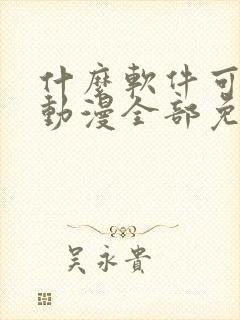 什麼軟件可
動漫全部免
吳永貴